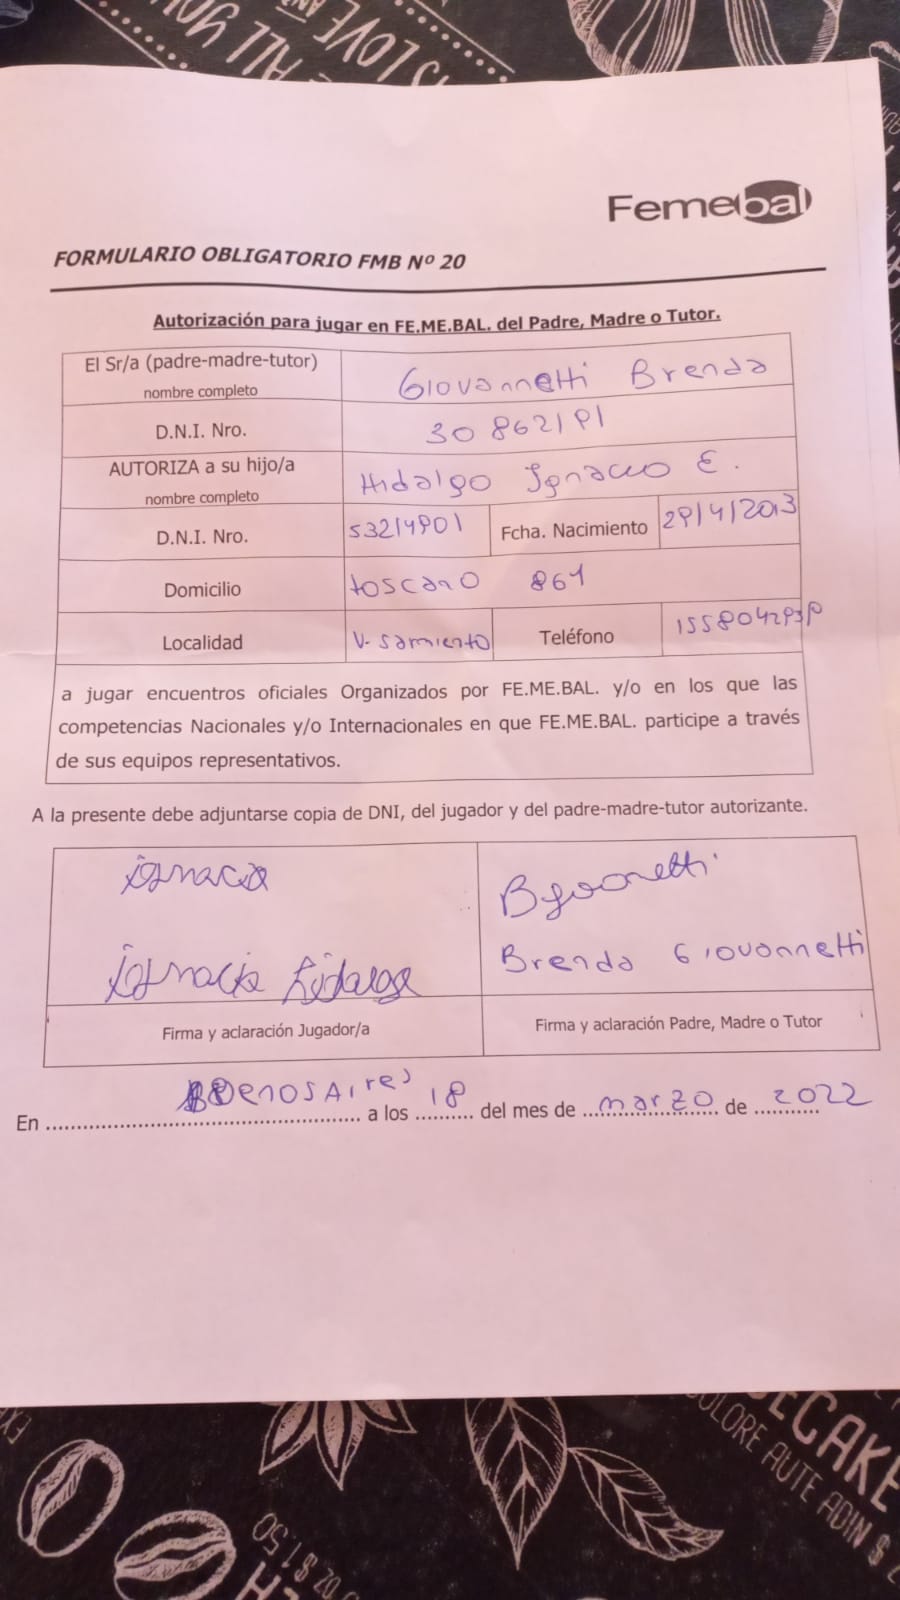 ALL YOU
LOVE
Femebal
FORMULARIO OBLIGATORIO FMB Nº 20
Autorización para jugar en FE.ME.BAL. del Padre, Madre o Tutor.
El Sr/a (padre-madre-tutor)
nombre completo
Giovannetti Brenda
D.N.I. Nro.
30862191
AUTORIZA a su hijo/a
nombre completo
Hidalgo Ignacio E.
D.N.I. Nro.
53214901
Fcha. Nacimiento
29/4/2013
Domicilio
toscano 861
Localidad
V. sarmiento
Teléfono
a jugar encuentros oficiales Organizados por FE.ME.BAL. y/o en los que las
competencias Nacionales y/o Internacionales en que FE.ME.BAL. participe a través
de sus equipos representativos.
A la presente debe adjuntarse copia de DNI, del jugador y del padre-madre-tutor autorizante.
ignacio
ignacio hidalgo
Brenda Giovannetti
Firma y aclaración Jugador/a
Firma y aclaración Padre, Madre o Tutor
En Buenos Aires a los 18 del mes de marzo de 2022
ECAKE
DOLORE AUTE ADIN $
OZ $1.50